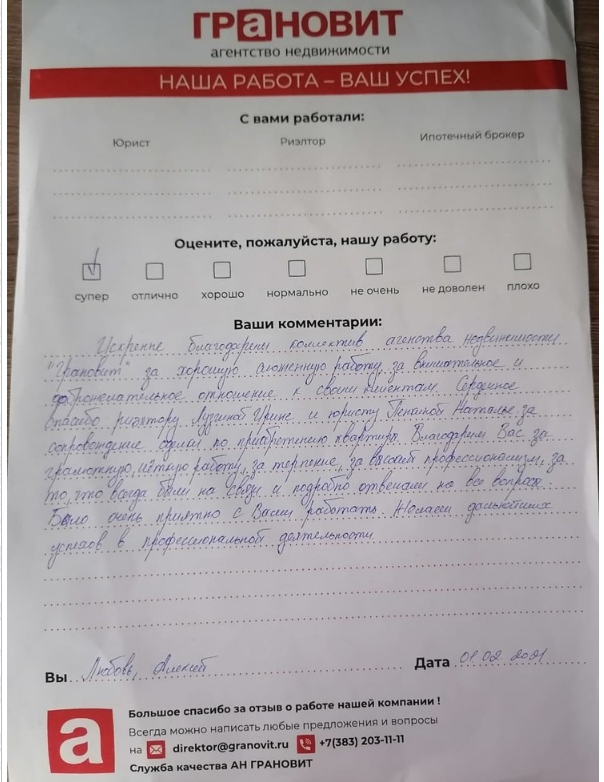 ГРАНОВИТ
агентство недвижимости
НАША РАБОТА – ВАШ УСПЕХ!
С вами работали:
Юрист Риэлтор Ипотечный брокер
Оцените, пожалуйста, нашу работу:
супер отлично хорошо нормально не очень не доволен плохо
Ваши комментарии:
Искренне благодарим коллектив агенства недвижимости
"Грановит" за хорошую слаженную работу, за внимательное и
доброжелательное отношение к своим клиентам. Сердечное
спасибо риэлтору Ирине и юристу Наталье за
сопровождение сделки по приобретению квартиры. Благодарим Вас за
грамотную, чёткую работу, за терпение, за высокий профессионализм, за
то, что всегда были на связи и подробно отвечали на все вопросы.
Было очень приятно с Вами работать. Желаем дальнейших
успехов в профессиональной деятельности.
Вы Любовь, Алексей Дата 01.02.2021
Большое спасибо за отзыв о работе нашей компании !
Всегда можно написать любые предложения и вопросы
на direktor@granovit.ru +7(383) 203-11-11
Служба качества АН ГРАНОВИТ
а